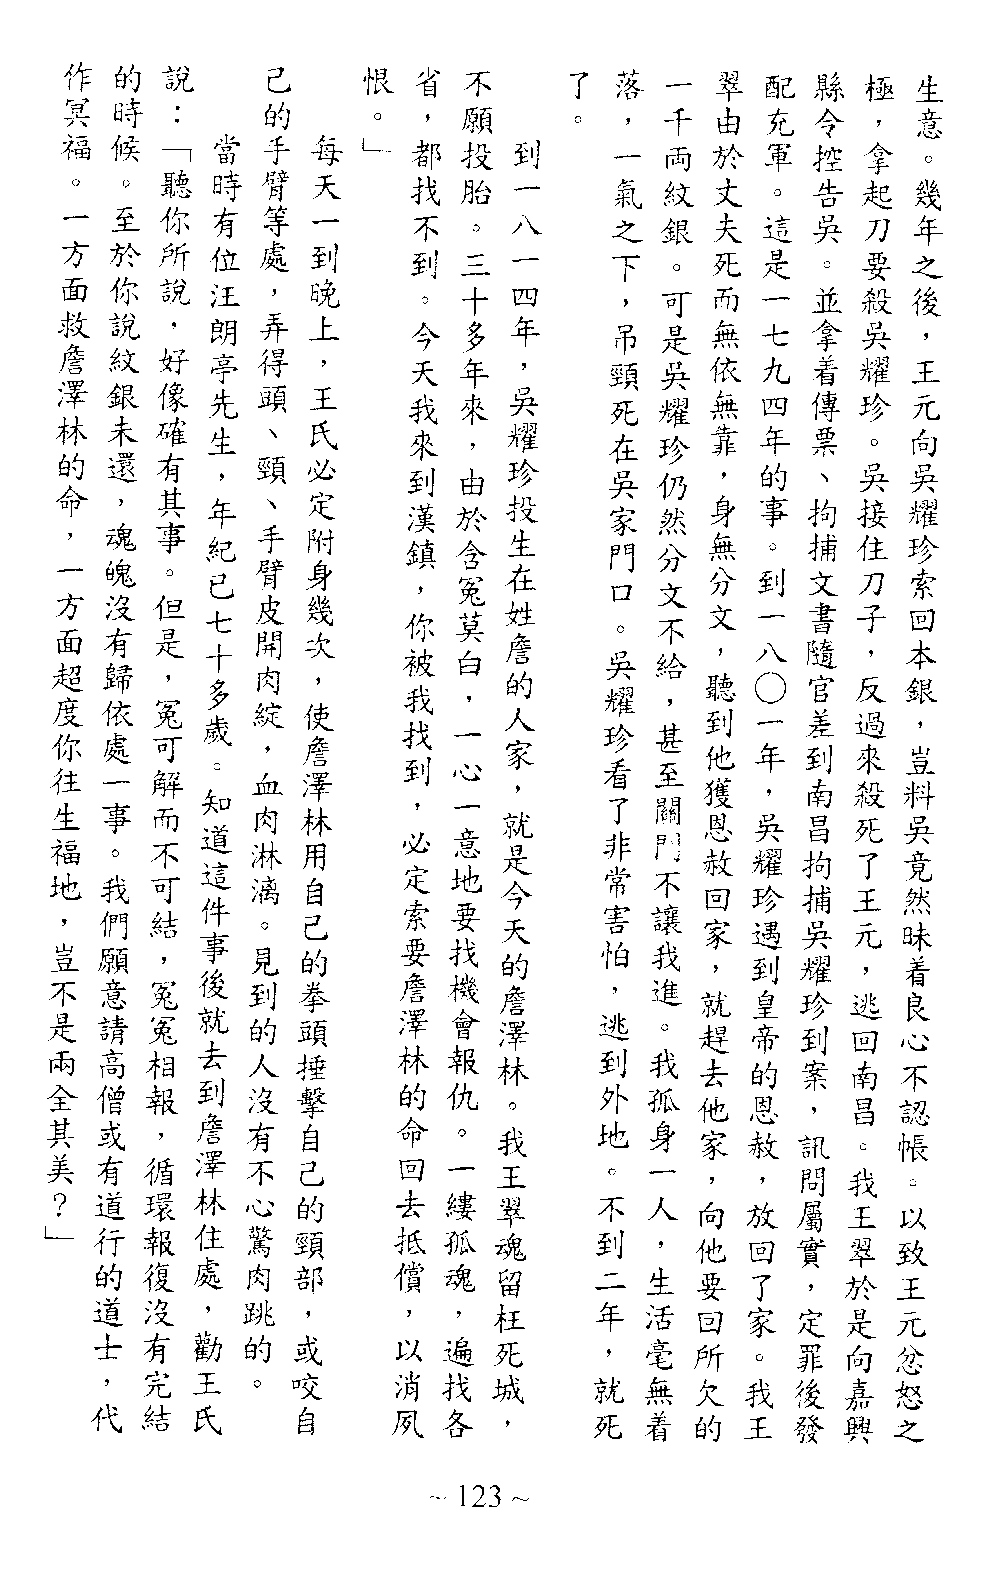 生意。幾年之後，王元向吳耀珍索回本銀，豈料吳竟然昧着良心不認帳。以致王元忿怒之
極，拿起刀要殺吳耀珍。吳接住刀子，反過來殺死了王元，逃回南昌。我王翠於是向嘉興
縣令控告吳。並拿着傳票、拘捕文書隨官差到南昌拘捕吳耀珍到案，訊問屬實，定罪後發
配充軍。這是一七九四年的事。到一八〇一年，吳耀珍遇到皇帝的恩赦，放回了家。我王
翠由於丈夫死而無依無靠，身無分文，聽到他獲恩赦回家，就趕去他家，向他要回所欠的
一千両紋銀。可是吳耀珍仍然分文不給，甚至關門不讓我進。我孤身一人，生活毫無着
落，一氣之下，吊頸死在吳家門口。吳耀珍看了非常害怕，逃到外地。不到二年，就死
了。
到一八一四年，吳耀珍投生在姓詹的人家，就是今天的詹澤林。我王翠魂留枉死城，
不願投胎。三十多年來，由於含冤莫白，一心一意地要找機會報仇。一縷孤魂，遍找各
省，都找不到。今天我來到漢鎮，你被我找到，必定索要詹澤林的命回去抵償，以消夙
恨。」
每天一到晚上，王氏必定附身幾次，使詹澤林用自己的拳頭捶擊自己的頸部，或咬自
己的手臂等處，弄得頭、頸、手臂皮開肉綻，血肉淋漓。見到的人沒有不心驚肉跳的。
當時有位汪朗亭先生，年紀已七十多歲。知道這件事後就去到詹澤林住處，勸王氏
說：「聽你所說，好像確有其事。但是，冤可解而不可結，冤冤相報，循環報復沒有完結
的時候。至於你說紋銀未還，魂魄沒有歸依處一事。我們願意請高僧或有道行的道士，代
作冥福。一方面救詹澤林的命，一方面超度你往生福地，豈不是兩全其美？」
~ 123 ~